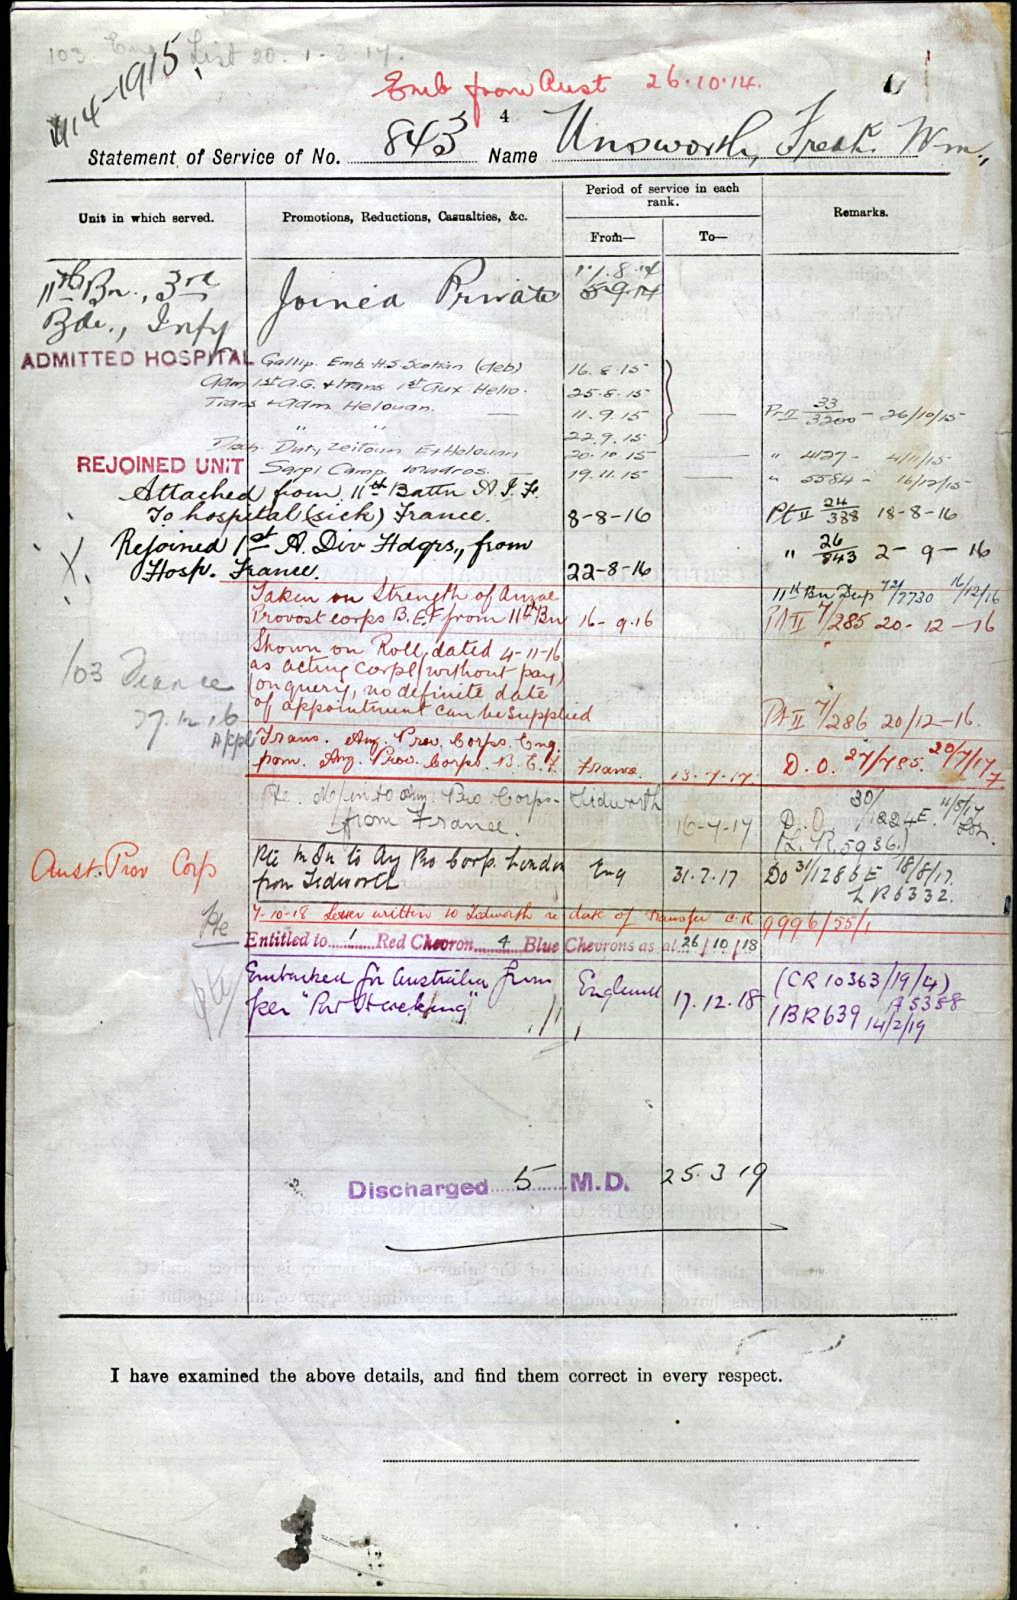 103 Eng List 20. 1-3-17.
1914-1915.
Emb from Aust 26.10.14.
4
Statement of Service of No. 843 Name Unsworth, Fredk. Wm.,
Unit in which served.
Promotions, Reductions, Casualties, &c.
Period of service in each rank.
From—
To—
Remarks.
11th Bn., 3rd
Bde., Infy
Joined Private
8.14
5.9.14
ADMITTED HOSPITAL Gallip. Emb. H.S. Scotian (deb) 16.8.15
Adm 1st A.G. & trans 1st Aux Helio. 25.8.15
Trans & Adm Helouan. — 11.9.15 — Pt II 33/3200 - 26/10/15
" " 22.9.15
Duty Zeitoun Ex Helouan 20.10.15 — " 4127 - 4/11/15
REJOINED UNIT Sarpi Camp Mudros. — 19.11.15 — " 5584 - 16/12/15
Attached from 11th Battn A.I.F.
To hospital (sick) France. 8-8-16 Pt II 24/388 18-8-16
X. Rejoined 1st A. Div Hdqrs., from
Hosp. France. 22-8-16 " 26/843 2-9-16
Taken on Strength of Anzac 11th Bn Dup 72/7730 16/12/16
Provost corps B.E.F from 11th Bn 16-9.16 Pt II 7/285 20-12-16
Shown on Roll, dated 4-11-16
as acting Corpl (without pay)
(on query, no definite date
of appointment can be supplied Pt II 7/286 20/12-16.
103 France
27.12.16
Appl
Trans. Anz. Prov. Corps. Eng.
from. Anz. Prov. Corps. B.E.F. France. 13-7-17. D.O. 27/785. 20/7/17
Pte. M/in to Anz. Pro Corps- Tidworth 30/ 11/8/17
from France. 16-7-17 D.O. 1224E. Ldn.
(L.R. 5936.)
Aust. Prov Corp
Pte M In to Anz Pro Corp. London Eng 31.7.17 Do 31/1286E 18/8/17.
from Tidworth LR6332.
Pte
7-10-18 Letter written to Tidworth re date of transfer C.R. 9996/55/1
Entitled to 1 Red Chevron 4 Blue Chevrons as at 26/10/18
Embarked for Australia from England 17.12.18 (CR 10363/19/4)
per "Port Hacking" A5388
1BR639 14/2/19
Discharged 5 M.D. 25.3.19
I have examined the above details, and find them correct in every respect.